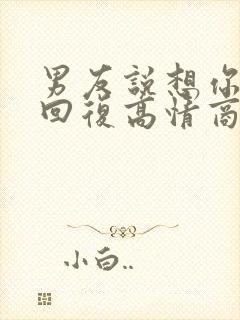 男友說想你
回復高情商
小白..